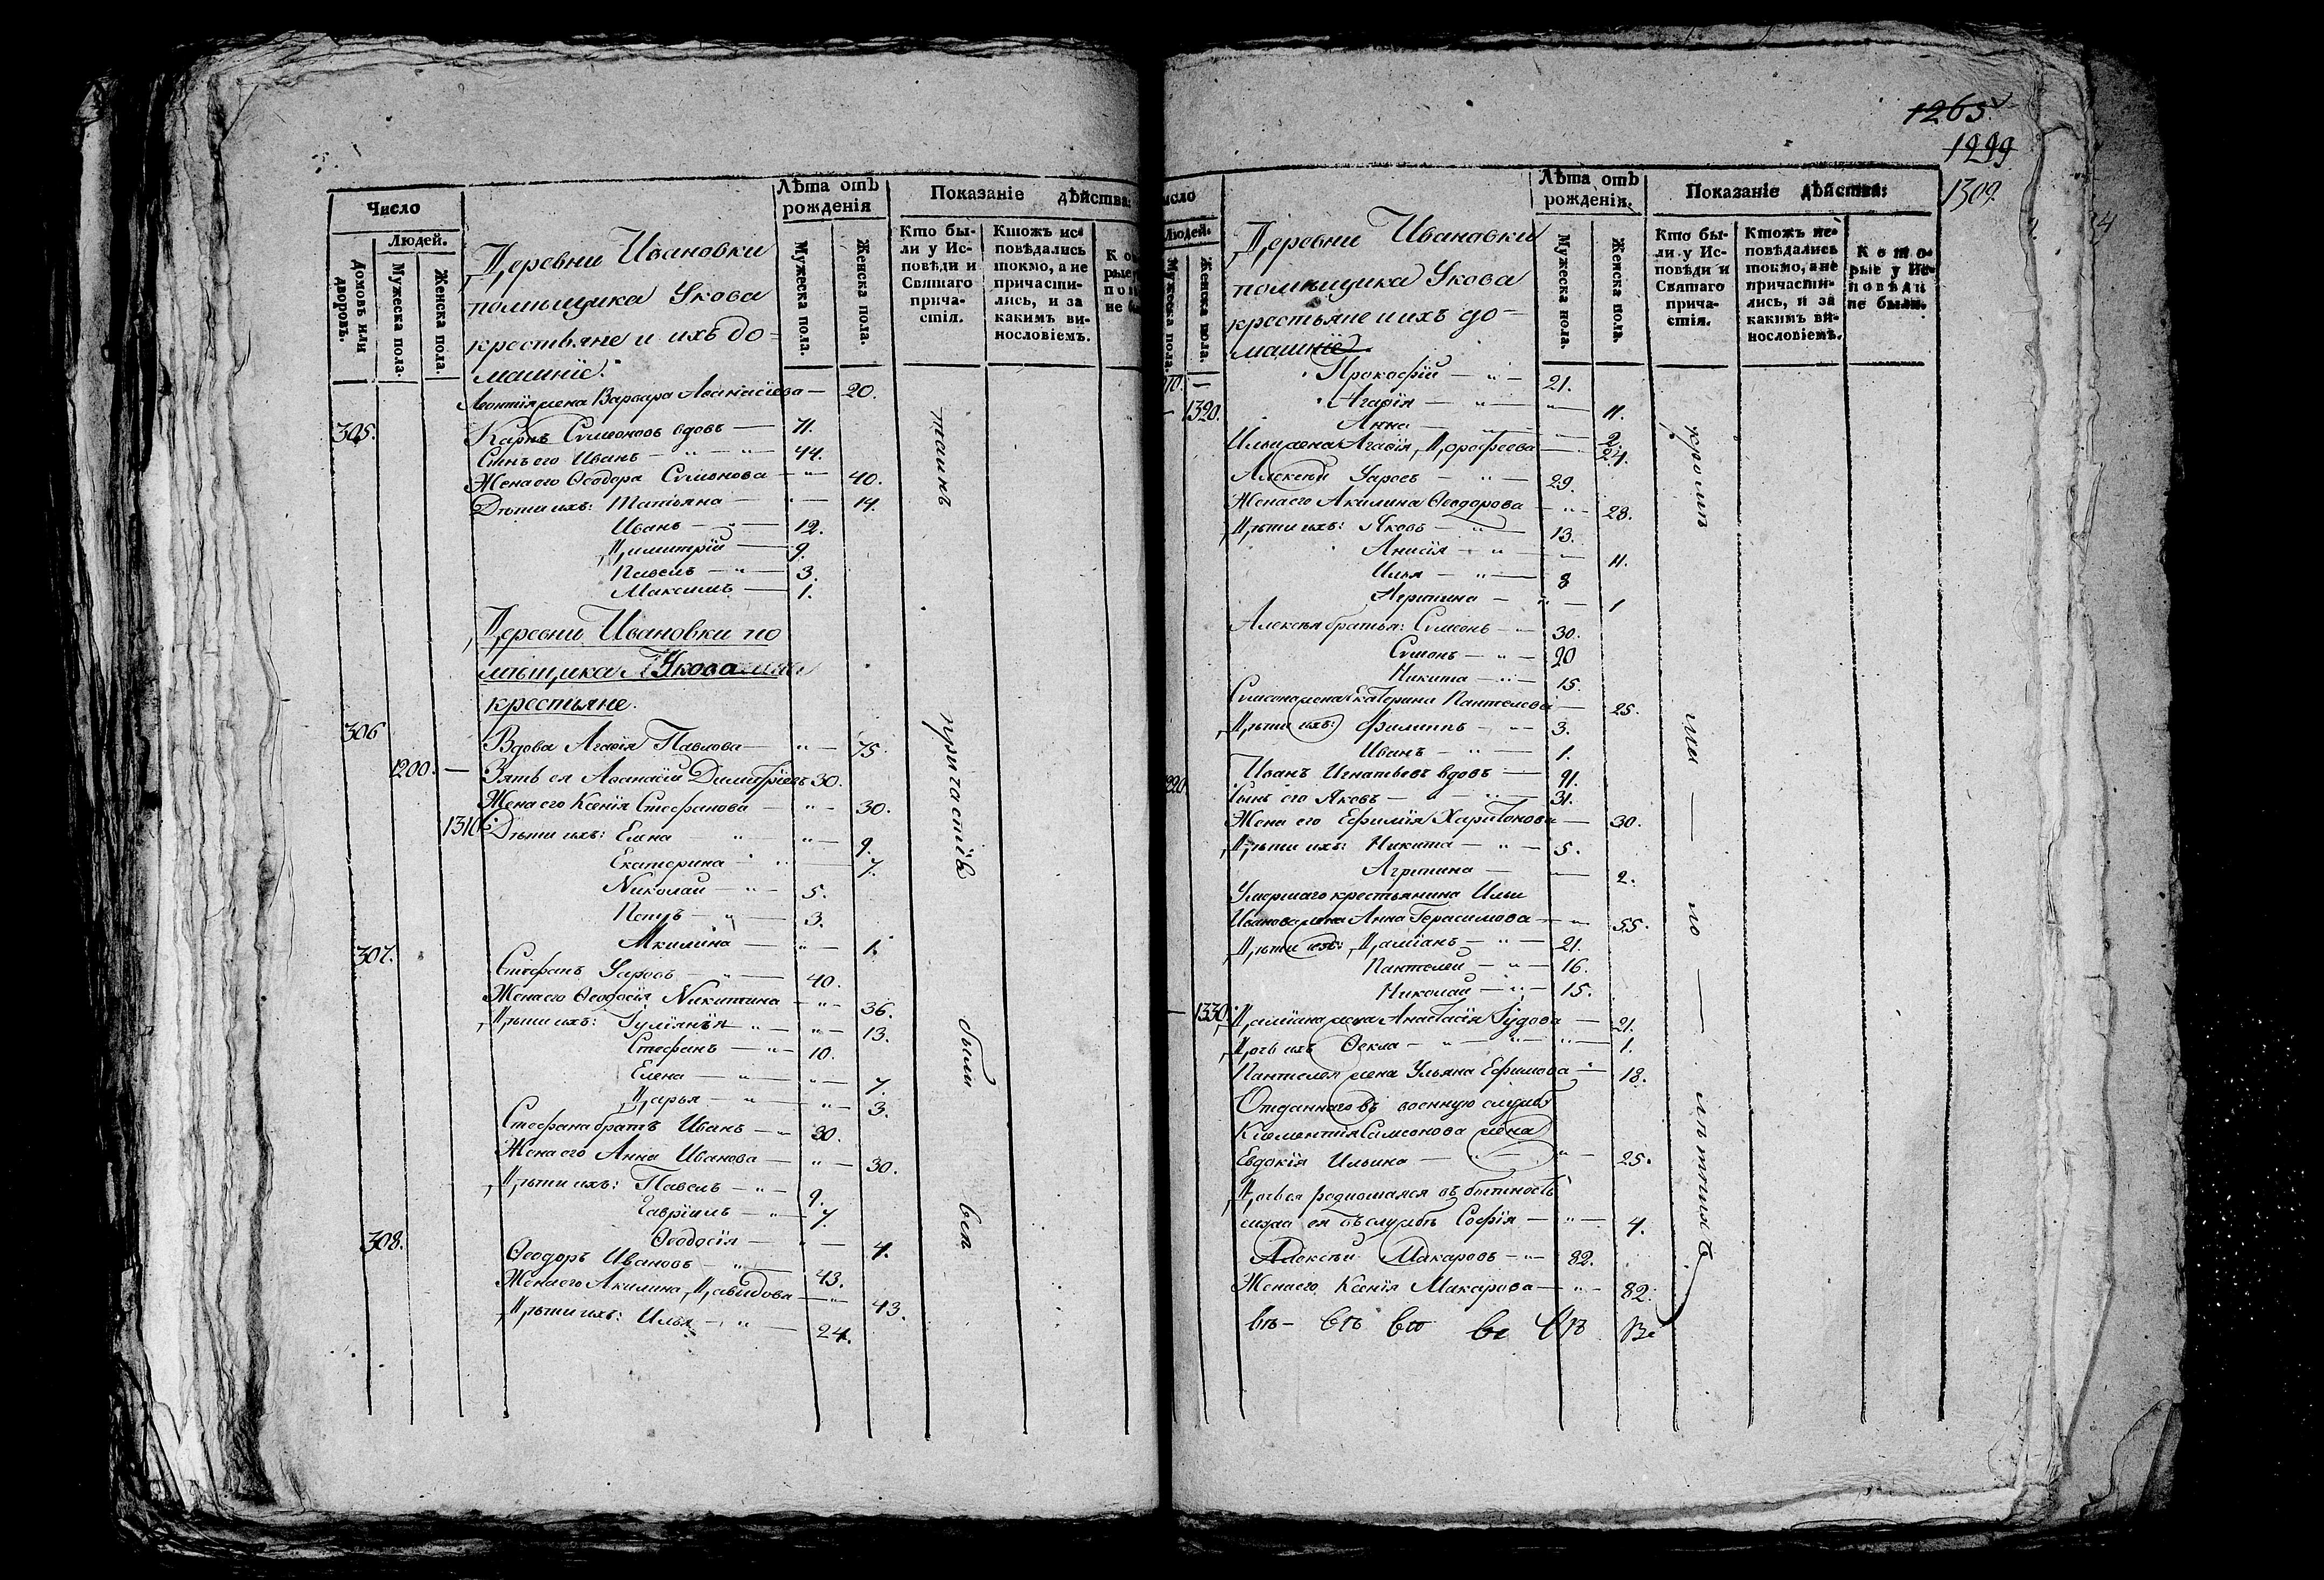 Число
Лѣта отъ рожденія
Показаніе дѣйства:
Домовъ или дворовъ.
Людей.
Мужеска пола.
Женска пола.
Деревни Ивановки
помѣщика Укова
крестьяне и ихъ до=
машніе.
Мужеска пола.
Женска пола.
Кто бы-
ли у Ис-
повѣди и
Святаго
прича-
стія.
Ктожъ ис-
повѣдались
токмо, а не
причасти-
лись, и за
какимъ ви-
нословіемъ.
Леонтія жена Варвара Аѳанасіева — 20.
305. Карпъ Симеоновъ вдовъ — 71.
Сынъ его Иванъ — " — 44.
Жена его Ѳеодора Симонова — " — 40.
Дѣти ихъ: Татьяна — " — 14.
Иванъ — " — 12.
Димитрій — 9.
Павелъ — " — 3.
Максимъ — 1.
Деревни Ивановки по
мѣщика Укова
крестьяне.
306 Вдова Агаѳія Павлова — " — 75.
1200. — Зять ея Аѳанасій Димитріевъ 30.
Жена его Ксенія Стефанова — " — 30.
1310. Дѣти ихъ: Елена " — " — 9.
Екатерина — " — 7.
Николай — " — 5.
Петръ — " — 3.
Акилина — " — 1.
307. Стефанъ Уаровъ — " — 40.
Жена его Ѳеодосія Никитина — " — 36.
Дѣти ихъ: Іуліанія — " — " — 13.
Стефанъ — " — 10.
Елена — " — " — 7.
Дарья — " — " — 3.
Стефана братъ Иванъ — " 30.
Жена его Анна Иванова — " — 30.
Дѣти ихъ: Павелъ — " — 9.
Гавріилъ — " — 7.
Ѳеодосія — " — 4.
308. Ѳеодоръ Ивановъ — " — 43.
Жена его Акилина Давидова — " — 43.
Дѣти ихъ: Илья — " — 24.
таинъ
причастіѣ
были
всѣ
1265.
1299
1309.
Людей.
Мужеска пола.
Женска пола.
Деревни Ивановки
помѣщика Укова
крестьяне и ихъ до=
машніе.
Лѣта отъ рожденія.
Мужеска пола.
Женска пола.
Показаніе дѣйства:
Кто бы-
ли у Ис-
повѣди и
Святаго
прича-
стія.
Ктожъ ис-
повѣдались
токмо, а не
причасти-
лись, и за
какимъ ви-
нословіемъ.
Кото-
рые у Ис-
повѣди
не были.
Прокофій — " — 21.
1320. Агаѳія — " — " — 11.
Анна — 2.
Ильи жена Агаѳія Дорофеева — " — 24.
Алексѣй Уаровъ — " — 29.
Жена его Акилина Ѳеодорова — " — 28.
Дѣти ихъ: Яковъ — " — 13.
Анисія — " — 11.
Илья — " — 8
Агрипина — " — 1
Алексѣя братья: Симеонъ — " — 30.
Симонъ — " — 20
Никита — " — 15.
Симеона жена Екатерина Пантелеева — 25.
Дѣти ихъ: Филиппъ — " — 3.
Иванъ — " — 1.
Иванъ Игнатьевъ вдовъ — 91.
Сынъ его Яковъ — " — " — 31.
Жена его Ефимія Харитонова — 30.
Дѣти ихъ: Никита — " — 5.
Агрипина — " — 2.
Умершаго крестьянина Ильи
Иванова жена Анна Герасимова — " — 55.
Дѣти ихъ: Даміанъ — " — 21.
Пантелей — " — 16.
Николай — " — 15.
1330. Даміана жена Анастасія Іудова — 21.
Дочь ихъ Ѳекла — " — " — 1.
Пантелея жена Ульяна Ефимова — 18.
Отданнаго въ военную службу
Климентія Симеонова жена
Евдокія Ильина — " — " — 25.
Дочь ея родившаяся въ бытность
мужа ея въ службѣ Софія — " — 4.
Алексѣй Макаровъ — " — 82.
Жена его Ксенія Макарова — " — 82.